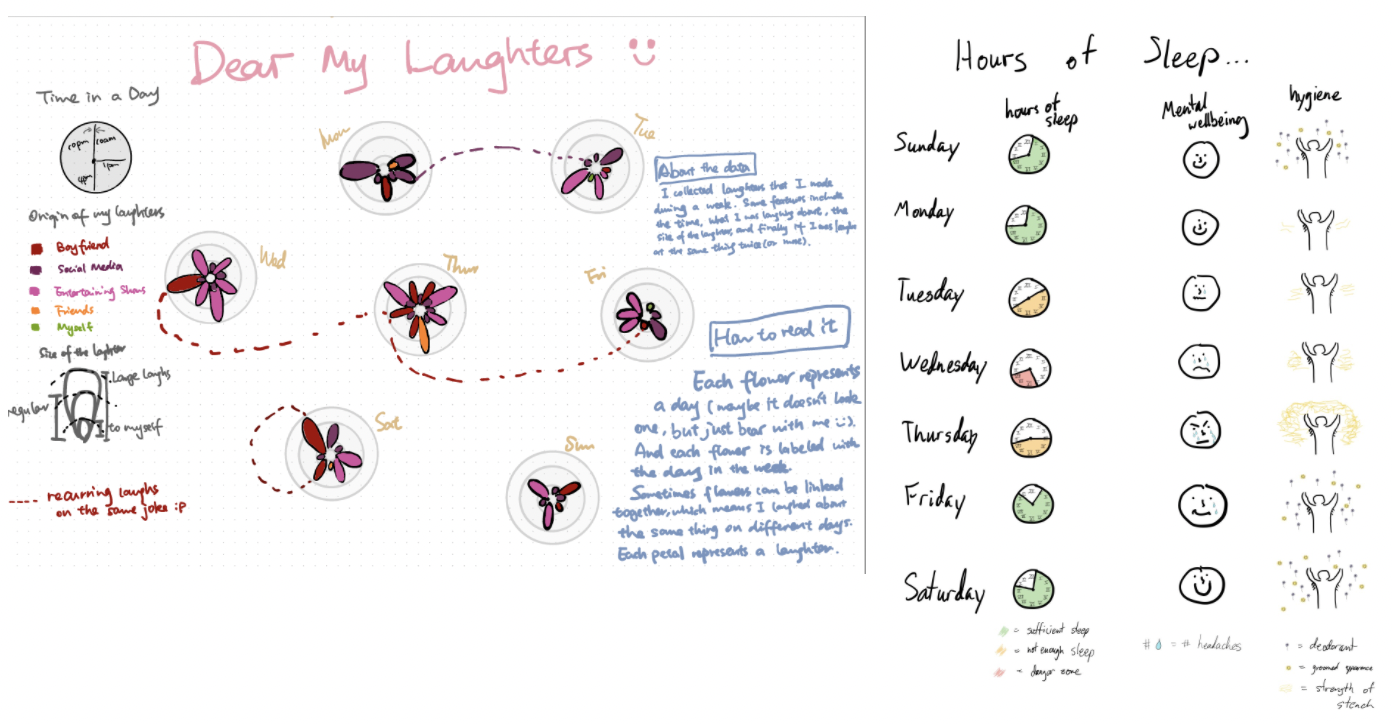 Dear My Laughters
Time in a Day
10pm
10am
4pm
1pm
Origin of my laughters
Boyfriend
Social Media
Entertaining Shows
Friends
Myself
Size of the laughter
Large laughs
regular
to myself
recurring laughs
on the same joke :P
Mon
Tue
Wed
Thur
Fri
Sat
Sun
About the data
I collected laughters that I made
during a week. Some features include
the time, what I was laughing about, the
size of the laughter, and finally if I was laugh
at the same thing twice (or more).
How to read it
Each flower represents
a day (maybe it doesn't look
one, but just bear with me :)).
And each flower is labeled with
the day in the week.
Sometimes flowers can be linked
together, which means I laughed about
the same thing on different days.
Each petal represents a laughter.
Hours of Sleep...
hours of
sleep
Mental
wellbeing
hygiene
Sunday
Monday
Tuesday
Wednesday
Thursday
Friday
Saturday
= sufficient sleep
= not enough sleep
= danger zone
# = # headaches
= deodorant
= groomed apparence
= strength of
stench